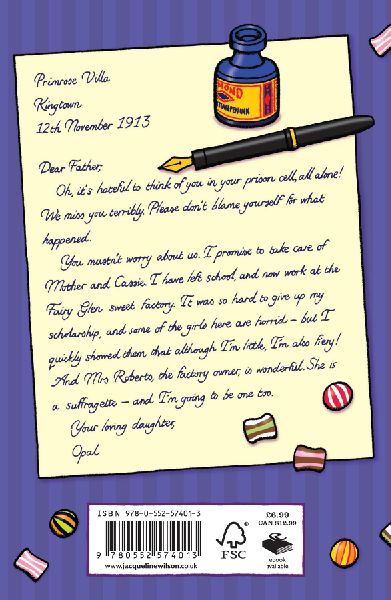 Primrose Villa
Kingtown
12th November 1913
MOND
Dear Father,
Oh, it's hateful to think of you in your prison cell, all alone!
We miss you terribly. Please don't blame yourself for what
happened.
You mustn't worry about us. I promise to take care of
Mother and Cassie. I have left school, and now work at the
Fairy Glen sweet factory. It was so hard to give up my
scholarship, and some of the girls here are horrid – but I
quickly showed them that although I'm little, I'm also fiery!
And Mrs Roberts, the factory owner, is wonderful. She is
a suffragette – and I'm going to be one too.
Your loving daughter,
Opal
ISBN 978-0-552-57401-3
9 780552 574013
www.jacquelinewilson.co.uk
FSC
£6.99
CAN $12.99
ebook
available